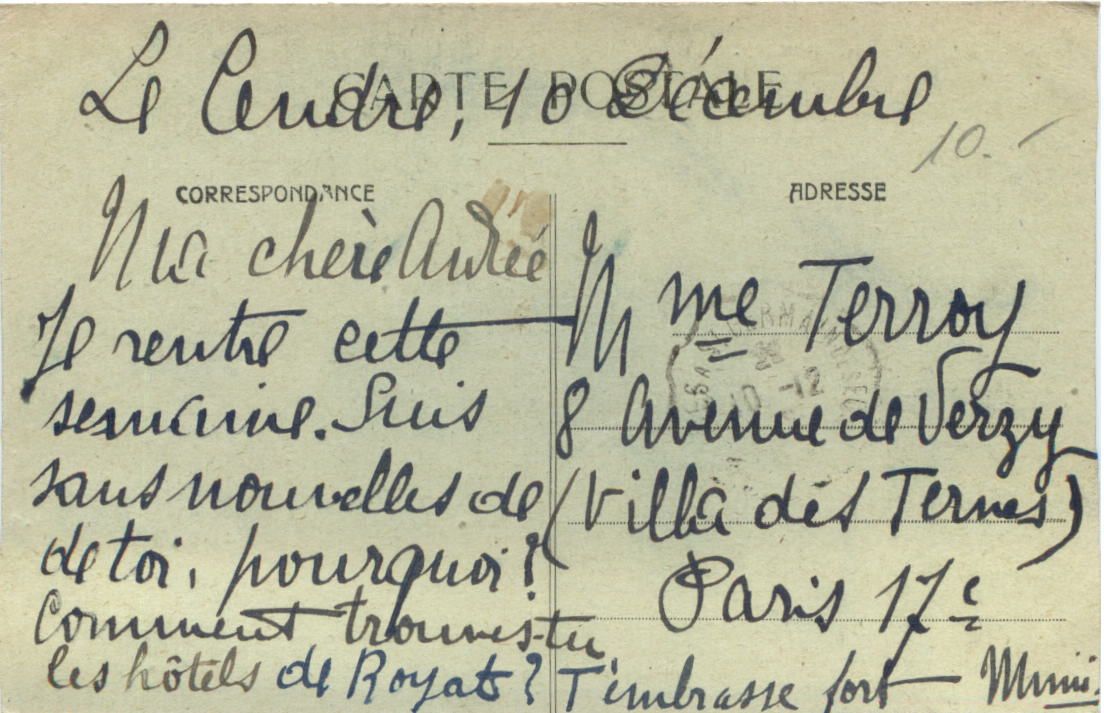 CARTE POSTALE
Le Cendre, 10 Décembre
10.-
CORRESPONDANCE
Ma chère Andrée
Je rentre cette
semaine. Suis
sans nouvelles de
de toi, pourquoi?
Comment trouves-tu
les hôtels de Royat?
T'embrasse fort — Mimi.
ADRESSE
Mme Terroy
8 Avenue de Verzy
(Villa des Ternes)
Paris 17e
10 -12